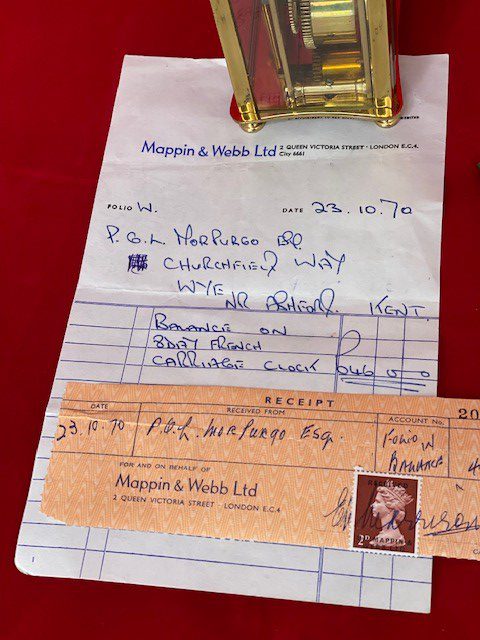 Mappin & Webb Ltd 2 QUEEN VICTORIA STREET · LONDON E.C.4.
City 6661
FOLIO W. DATE 23.10.70
P.G.L. MORPURGO ESQ.
CHURCHFIELD WAY
WYE
NR ASHFORD. KENT.
BALANCE ON
8 DAY FRENCH
CARRIAGE CLOCK £46 0 0
RECEIPT
DATE RECEIVED FROM ACCOUNT No. 20
23.10.70 P.G.L. MORPURGO ESQ. FOLIO W
BALANCE 4
FOR AND ON BEHALF OF
Mappin & Webb Ltd
2 QUEEN VICTORIA STREET LONDON E.C.4
RECEIVED
2D MAPPIN &
1